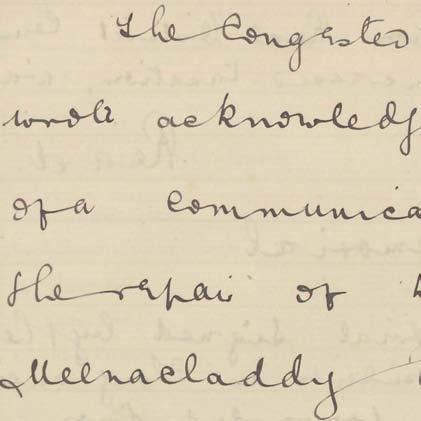 The Congested
wrote acknowledg
of a communica
the repair of
Meenacladdy